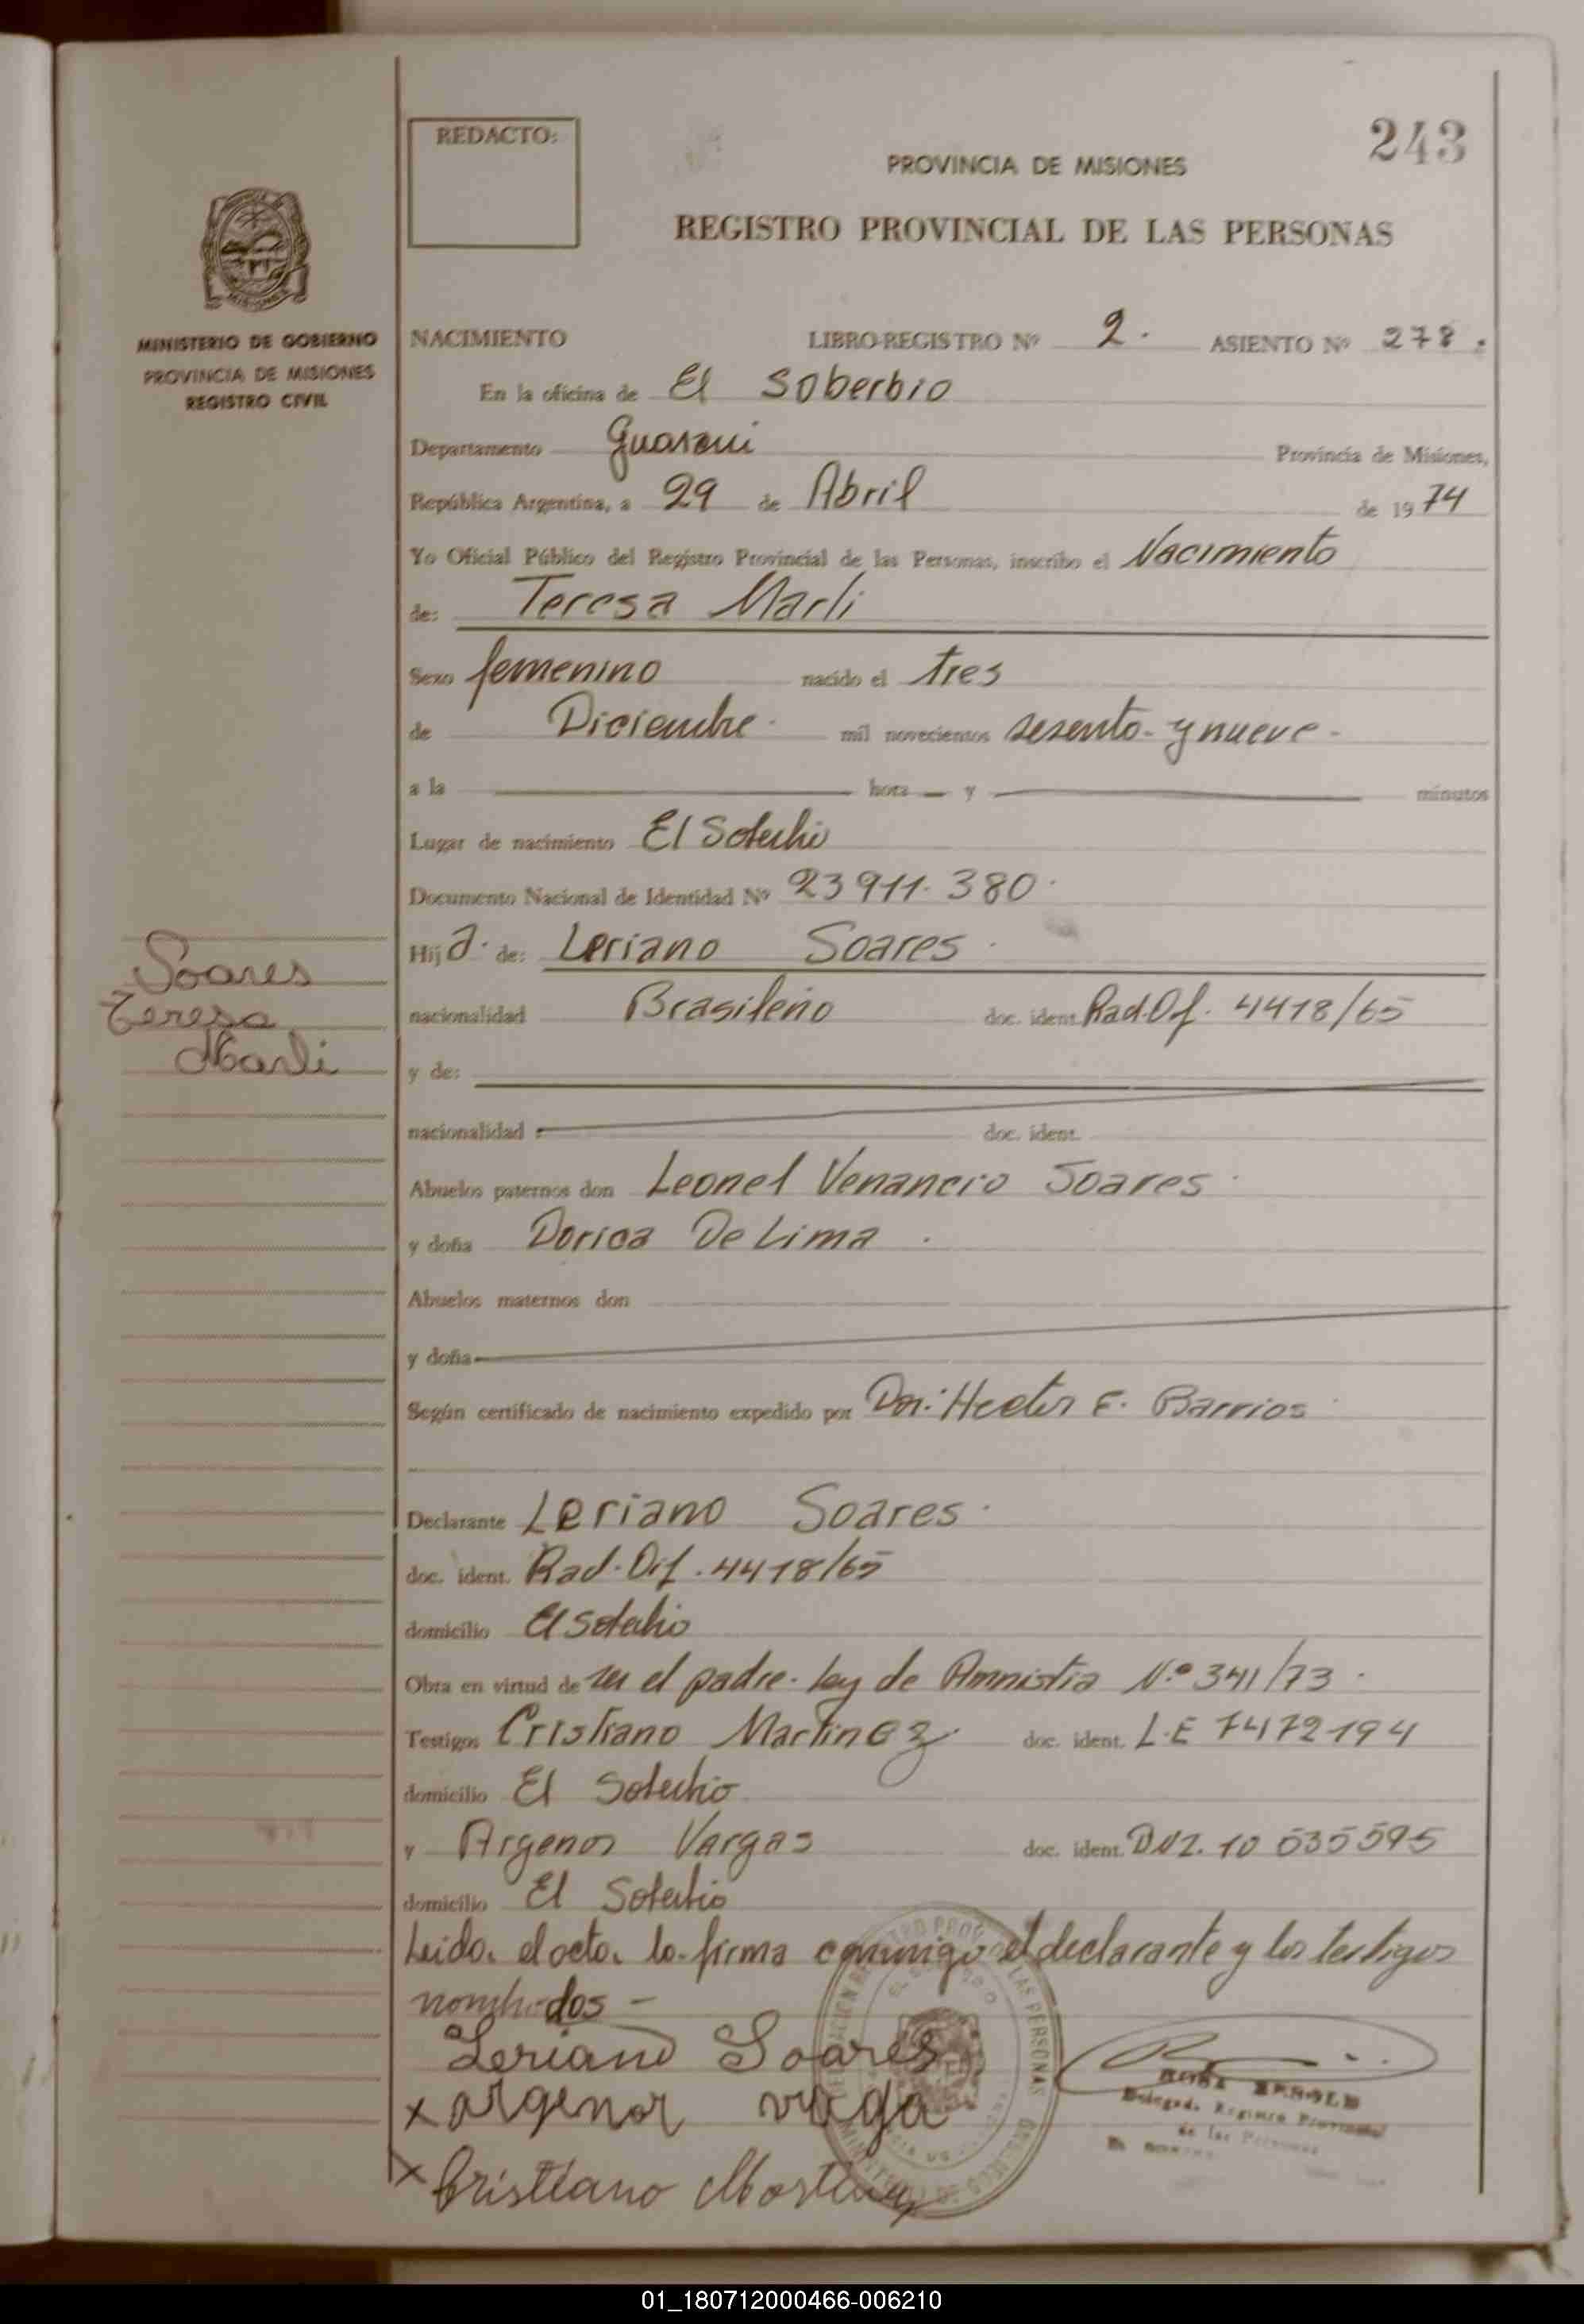 243
REDACTO:
PROVINCIA DE MISIONES
REGISTRO PROVINCIAL DE LAS PERSONAS
MISIONES
MINISTERIO DE GOBIERNO
PROVINCIA DE MISIONES
REGISTRO CIVIL
NACIMIENTO LIBRO-REGISTRO Nº 2. ASIENTO Nº 278.
En la oficina de El Soberbio
Departamento Guarani Provincia de Misiones,
República Argentina, a 29 de Abril de 1974
Yo Oficial Público del Registro Provincial de las Personas, inscribo el Nacimiento
de: Teresa Marli
Sexo femenino nacido el tres
de Diciembre mil novecientos sesenta y nueve
a la hora y minutos
Lugar de nacimiento El Soberbio
Documento Nacional de Identidad Nº 23911.380
Hija de: Leriano Soares
Soares
Teresa
Marli
nacionalidad Brasileño doc. ident. Rad. Of. 4418/65
y de:
nacionalidad doc. ident.
Abuelos paternos don Leonel Venancio Soares
y doña Dorica De Lima
Abuelos maternos don
y doña
Según certificado de nacimiento expedido por Don: Hector E. Barrios
Declarante Leriano Soares
doc. ident. Rad. Of. 4418/65
domicilio El Soberbio
Obra en virtud de ser el padre. Ley de Amnistia N.º 341/73
Testigos Cristiano Martinez doc. ident. L.E 7472194
domicilio El Soberbio
y Argenor Vargas doc. ident. DNI. 10 535595
domicilio El Soberbio
Leido el acta la firma conmigo el declarante y los testigos
nombrados
Leriano Soares
x argenor varga
x Cristiano Martinez
Delegada Registro Provincial
de las Personas
01_180712000466-006210